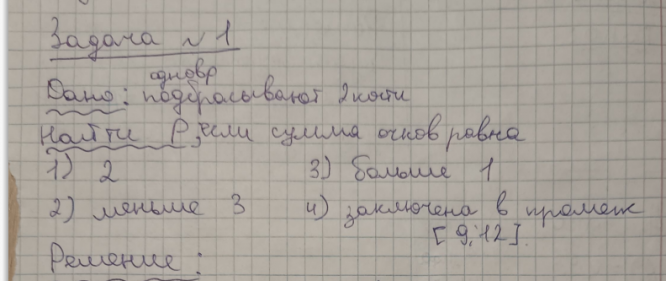 Задача №1
Дано: одновр подбрасывают 2 кости
Найти P, если сумма очков равна
1) 2 3) больше 1
2) меньше 3 4) заключена в промеж
[9;12].
Решение: